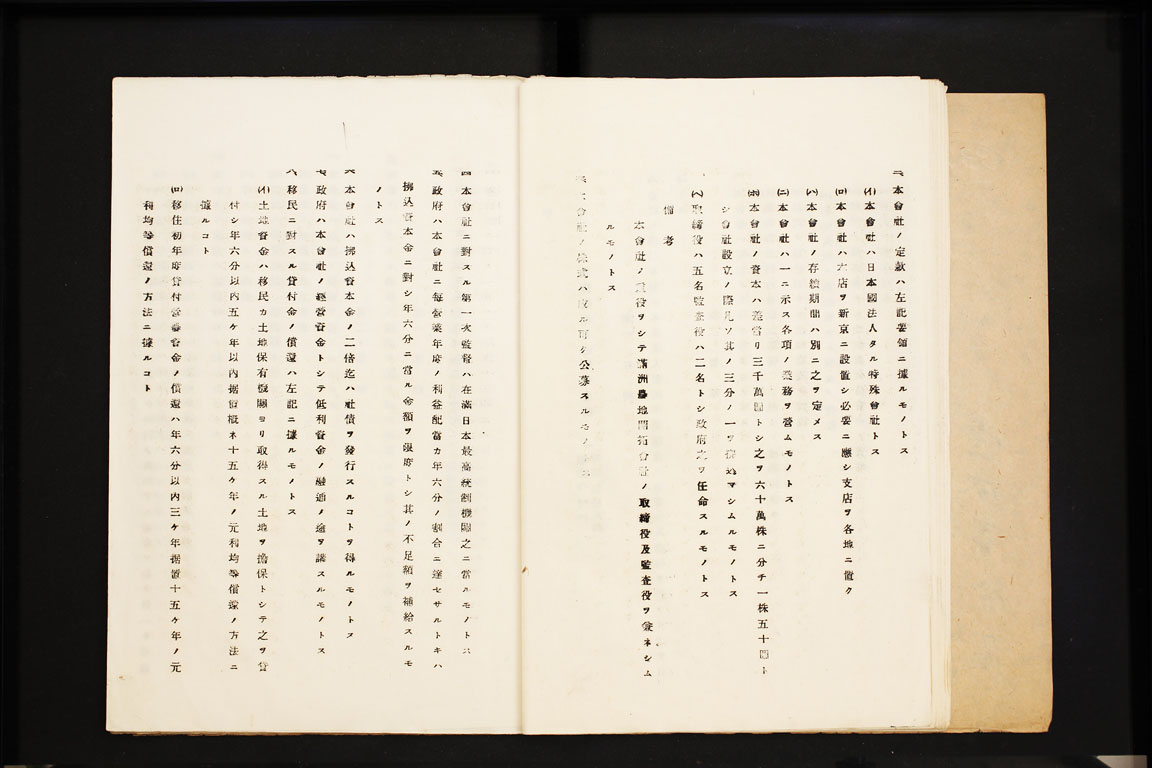 二、本會社ノ定款ハ左記要領ニ據ルモノトス
(イ)本會社ハ日本國法人タル特殊會社トス
(ロ)本會社ハ本店ヲ新京ニ設置シ必要ニ應シ支店ヲ各地ニ置ク
(ハ)本會社ノ存續期間ハ別ニ之ヲ定メス
(ニ)本會社ハ一ニ示ス各項ノ業務ヲ營ムモノトス
(ホ)本會社ノ資本ハ差當リ三千萬圓トシ之ヲ六十萬株ニ分チ一株五十圓ト
シ會社設立ノ際凡ソ其ノ三分ノ一ヲ拂込マシムルモノトス
(ヘ)取締役ハ五名監査役ハ二名トシ政府之ヲ任命スルモノトス
備考
本會社ノ重役ヲシテ滿洲農地開拓會社ノ取締役及監査役ヲ兼ネシム
ルモノトス
三、本會社ノ株式ハ成ル可ク公募スルモノトス
四、本會社ニ對スル第一次監督ハ在滿日本最高統制機關之ニ當ルモノトス
五、政府ハ本會社ニ每營業年度ノ利益配當カ年六分ノ割合ニ達セサルトキハ
拂込資本金ニ對シ年六分ニ當ル金額ヲ限度トシ其ノ不足額ヲ補給スルモ
ノトス
六、本會社ハ拂込資本金ノ二倍迄ハ社債ヲ發行スルコトヲ得ルモノトス
七、政府ハ本會社ノ經營資金トシテ低利資金ノ融通ノ途ヲ講スルモノトス
八、移民ニ對スル貸付金ノ償還ハ左記ニ據ルモノトス
(イ)土地資金ハ移民カ土地保有機關ヨリ取得スル土地ヲ擔保トシテ之ヲ貸
付シ年六分以內五ケ年以內据置概ネ十五ケ年ノ元利均等償還ノ方法ニ
據ルコト
(ロ)移住初年度貸付營農資金ノ償還ハ年六分以內三ケ年据置十五ケ年ノ元
利均等償還ノ方法ニ據ルコト